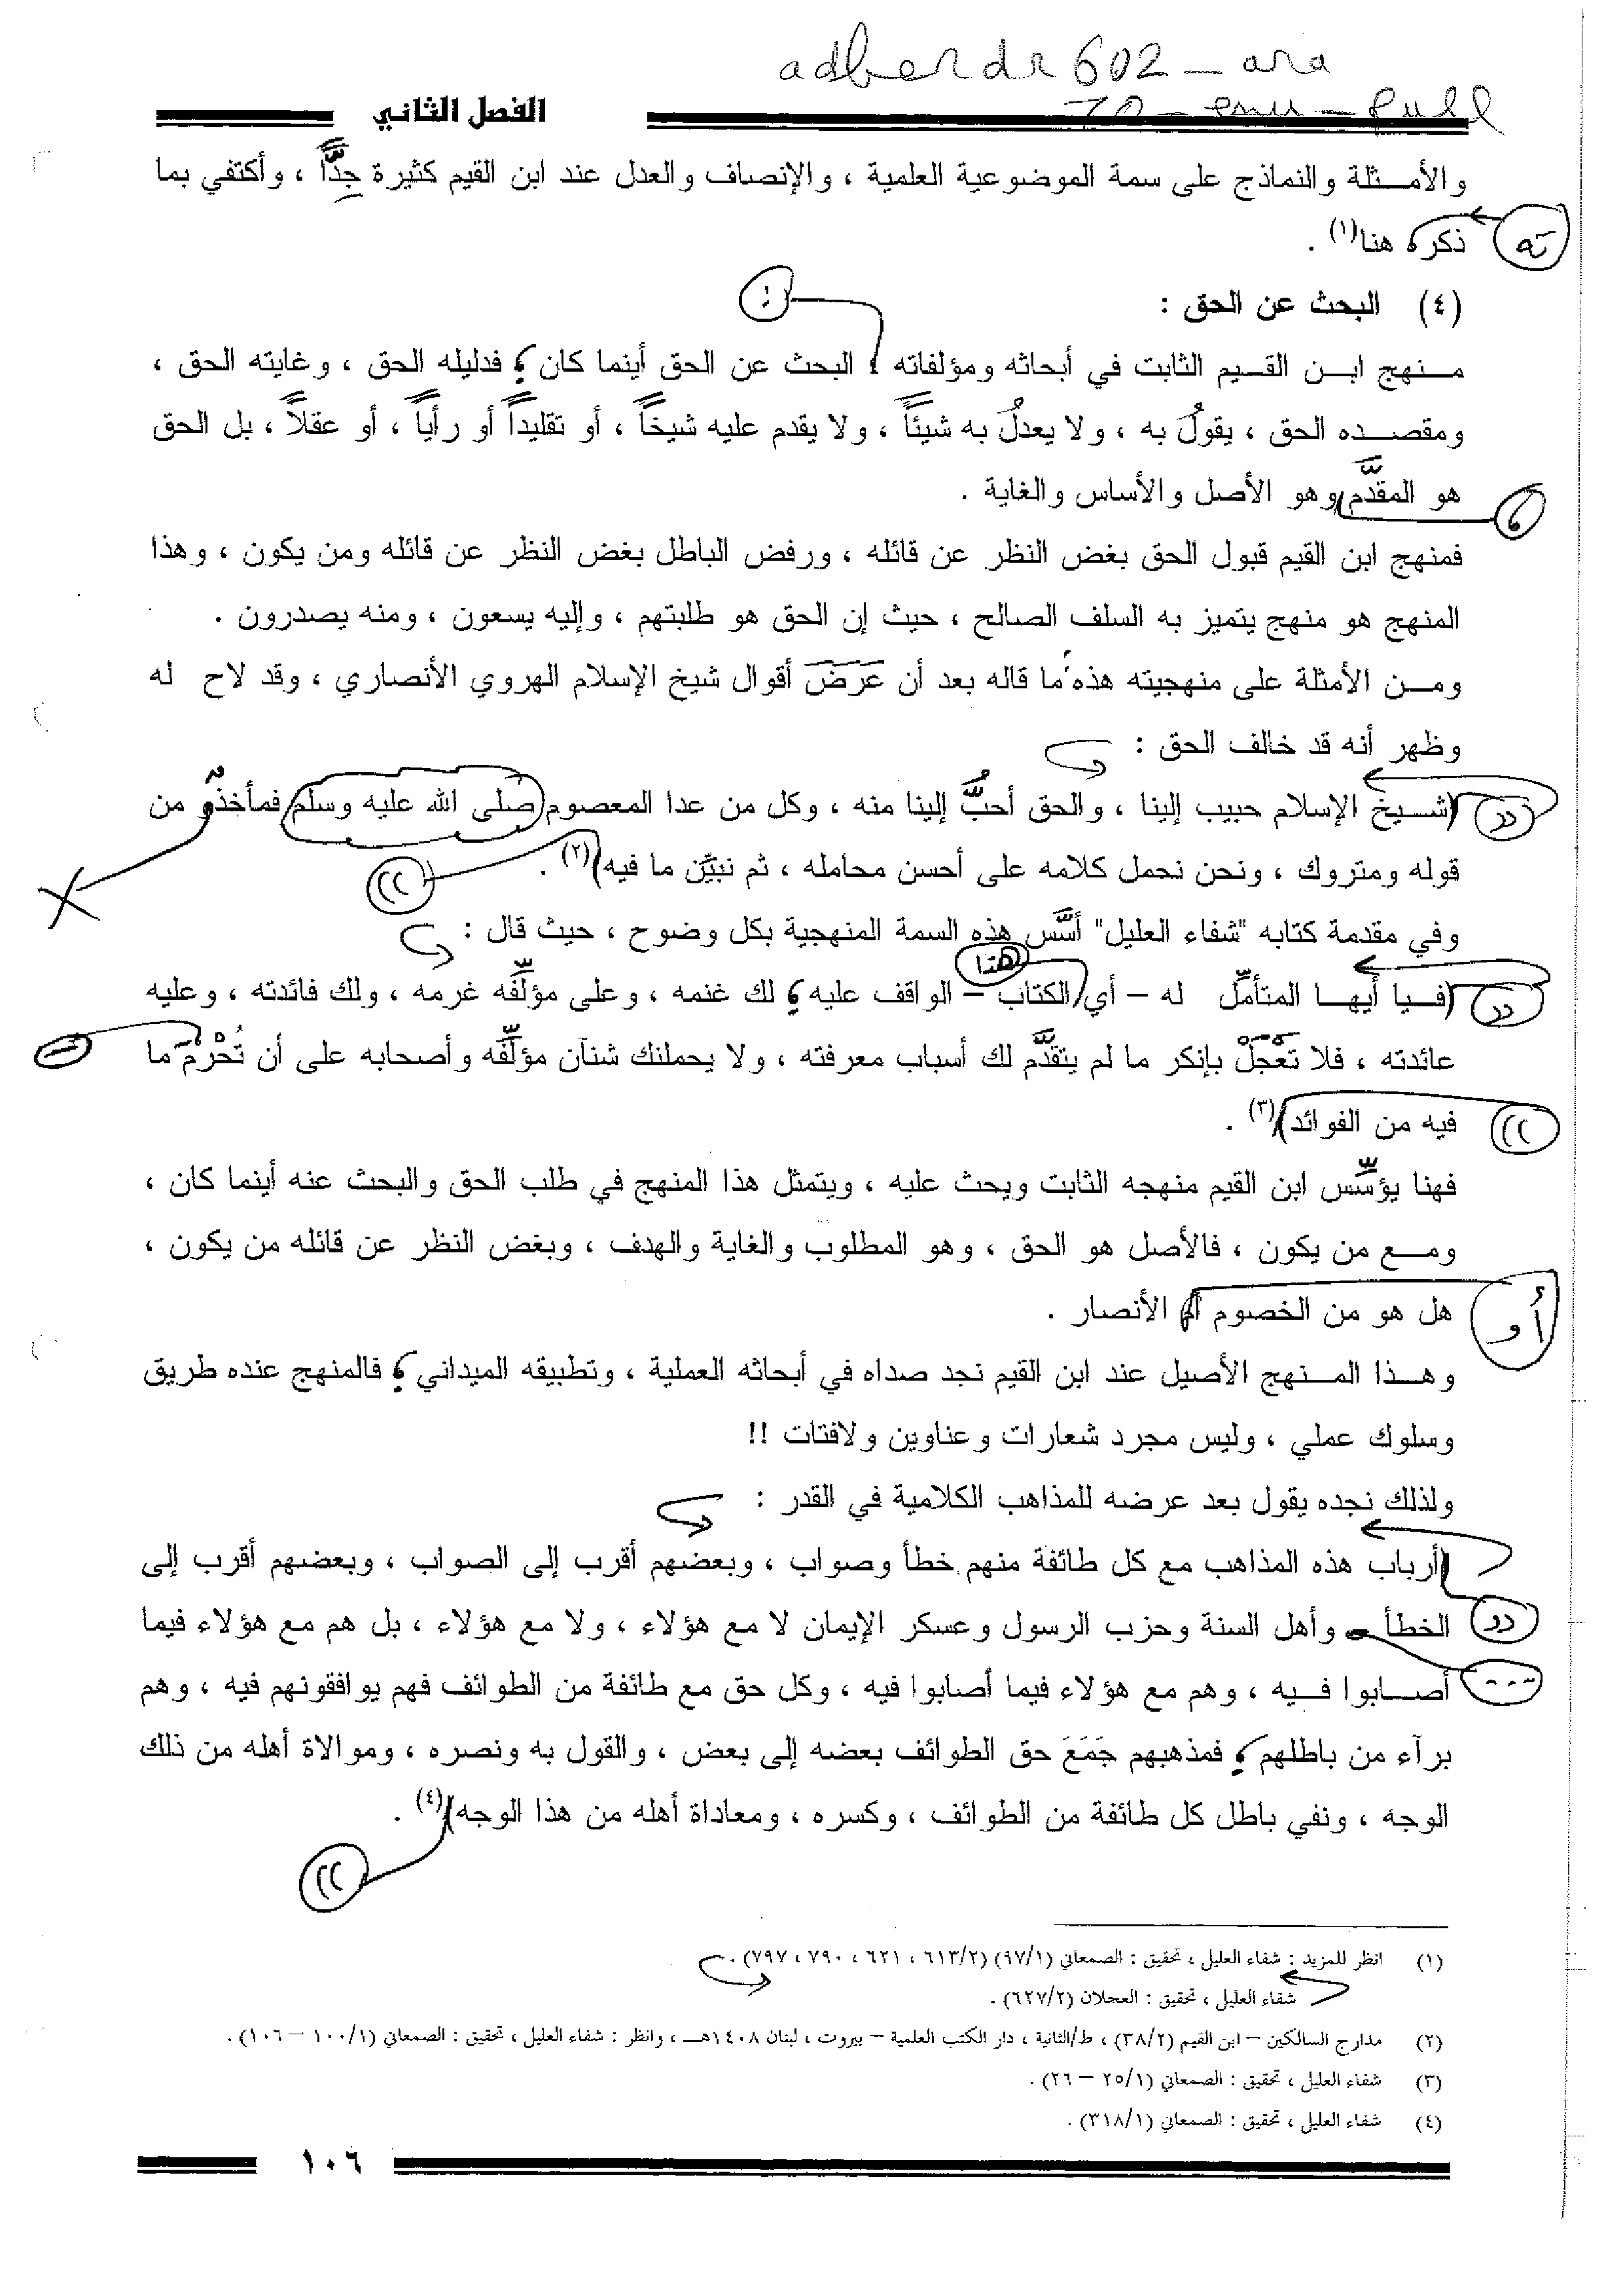 adberdr602-ara
70-enu-full
الفصل الثاني
والأمثلة والنماذج على سمة الموضوعية العلمية ، والإنصاف والعدل عند ابن القيم كثيرة جِدًّا ، وأكتفي بما
ته
ذكره هنا(١) .
:
(٤) البحث عن الحق :
منهج ابن القيم الثابت في أبحاثه ومؤلفاته ؛ البحث عن الحق أينما كان ، فدليله الحق ، وغايته الحق ،
ومقصده الحق ، يقولُ به ، ولا يعدلُ به شيئاً ، ولا يقدم عليه شيخاً ، أو تقليداً أو رأياً ، أو عقلاً ، بل الحق
هو المقدَّم وهو الأصل والأساس والغاية .
،
فمنهج ابن القيم قبول الحق بغض النظر عن قائله ، ورفض الباطل بغض النظر عن قائله ومن يكون ، وهذا
المنهج هو منهج يتميز به السلف الصالح ، حيث إن الحق هو طلبتهم ، وإليه يسعون ، ومنه يصدرون .
ومن الأمثلة على منهجيته هذه ما قاله بعد أن عَرَضَ أقوال شيخ الإسلام الهروي الأنصاري ، وقد لاح له
وظهر أنه قد خالف الحق :
((
(شيخ الإسلام حبيب إلينا ، والحق أحبُّ إلينا منه ، وكل من عدا المعصوم (صلى الله عليه وسلم) فمأخذو من
قوله ومتروك ، ونحن نحمل كلامه على أحسن محامله ، ثم نبيِّن ما فيه)(٢) .
))
وفي مقدمة كتابه "شفاء العليل" أسَّس هذه السمة المنهجية بكل وضوح ، حيث قال :
هذا
((
(فيا أيها المتأمِّل له – أي الكتاب – الواقف عليه ، لك غنمه ، وعلى مؤلِّفه غرمه ، ولك فائدته ، وعليه
عائدته ، فلا تَعْجَلْ بإنكر ما لم يتقدَّم لك أسباب معرفته ، ولا يحملنك شنآن مؤلِّفه وأصحابه على أن تُحْرَم ما
فيه من الفوائد)(٣) .
))
فهنا يؤسِّس ابن القيم منهجه الثابت ويحث عليه ، ويتمثل هذا المنهج في طلب الحق والبحث عنه أينما كان ،
ومع من يكون ، فالأصل هو الحق ، وهو المطلوب والغاية والهدف ، وبغض النظر عن قائله من يكون ،
أو
هل هو من الخصوم أم الأنصار .
وهذا المنهج الأصيل عند ابن القيم نجد صداه في أبحاثه العملية ، وتطبيقه الميداني ، فالمنهج عنده طريق
وسلوك عملي ، وليس مجرد شعارات وعناوين ولافتات !!
ولذلك نجده يقول بعد عرضه للمذاهب الكلامية في القدر :
(أرباب هذه المذاهب مع كل طائفة منهم خطأ وصواب ، وبعضهم أقرب إلى الصواب ، وبعضهم أقرب إلى
((
الخطأ وأهل السنة وحزب الرسول وعسكر الإيمان لا مع هؤلاء ، ولا مع هؤلاء ، بل هم مع هؤلاء فيما
...
أصابوا فيه ، وهم مع هؤلاء فيما أصابوا فيه ، وكل حق مع طائفة من الطوائف فهم يوافقونهم فيه ، وهم
برآء من باطلهم ، فمذهبهم جَمَعَ حق الطوائف بعضه إلى بعض ، والقول به ونصره ، وموالاة أهله من ذلك
الوجه ، ونفي باطل كل طائفة من الطوائف ، وكسره ، ومعاداة أهله من هذا الوجه)(٤) .
))
(١) انظر للمزيد : شفاء العليل ، تحقيق : الصمعاني (٩٧/١) (٦١٣/٢ ، ٦٢١ ، ٧٩٠ ، ٧٩٧) .
شفاء العليل ، تحقيق : العجلان (٦٢٧/٢) .
(٢) مدارج السالكين – ابن القيم (٣٨/٢) ، ط/الثانية ، دار الكتب العلمية – بيروت ، لبنان ١٤٠٨هـ ، وانظر : شفاء العليل ، تحقيق : الصمعاني (١٠٠/١ – ١٠٦) .
(٣) شفاء العليل ، تحقيق : الصمعاني (٢٥/١ – ٢٦) .
(٤) شفاء العليل ، تحقيق : الصمعاني (٣١٨/١) .
١٠٦